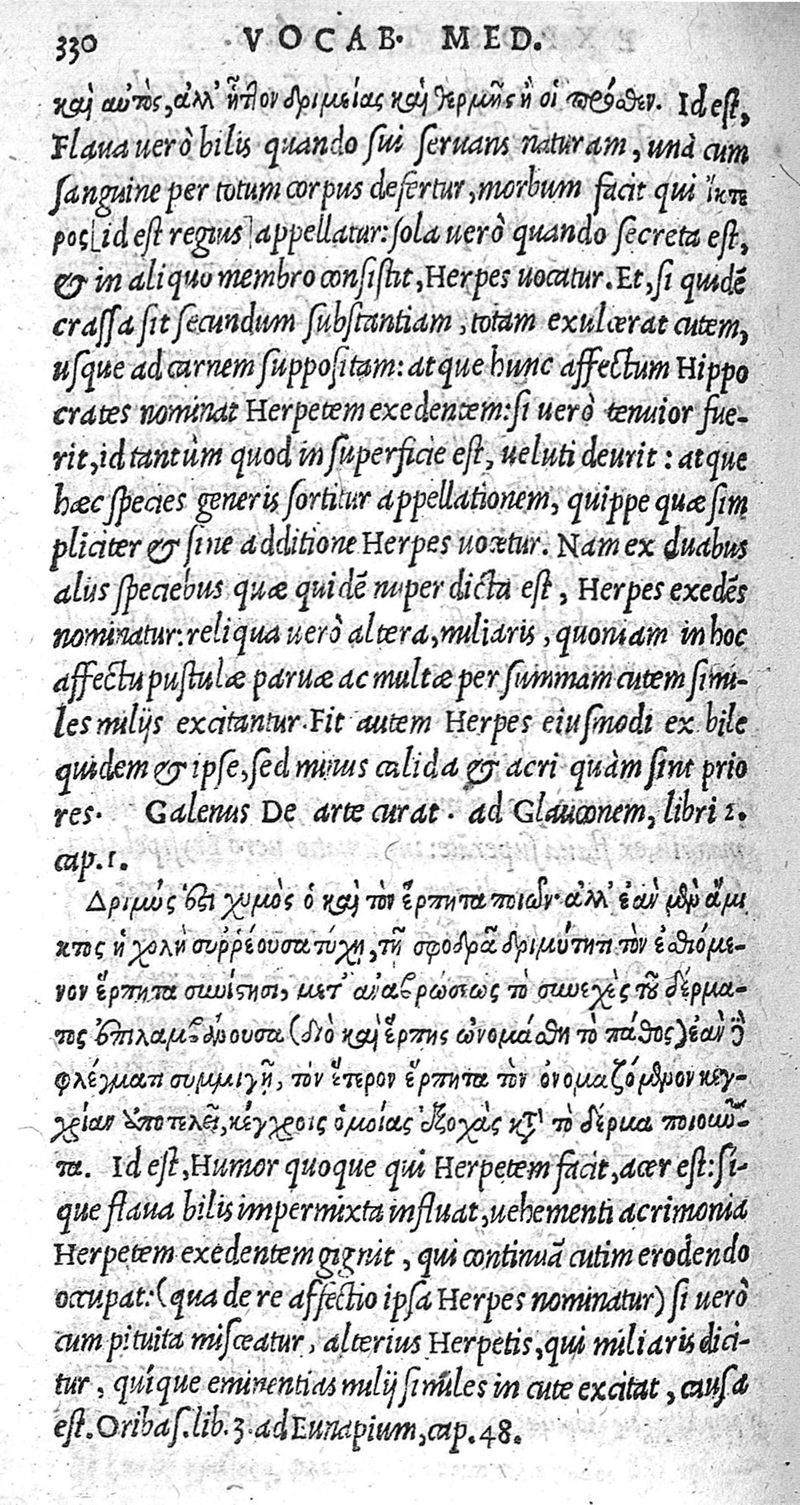 330 VOCAB. MED.
καὶ αὐτὸς, ἀλλ' ἧττον δριμείας καὶ θερμῆς ἢ οἱ πρόσθεν. Id est,
Flaua uerò bilis quando sui seruans naturam, unà cum
sanguine per totum corpus defertur, morbum facit qui ἴκτε
ρος[id est regius] appellatur: sola uerò quando secreta est,
& in aliquo membro consistit, Herpes uocatur. Et, si quidē
crassa sit secundum substantiam, totam exulcerat cutem,
usque ad carnem suppositam: atque hunc affectum Hippo
crates nominat Herpetem exedentem: si uerò tenuior fue-
rit, id tantùm quod in superficie est, ueluti deurit: atque
hæc species generis sortitur appellationem, quippe quæ sim
pliciter & sine additione Herpes uocetur. Nam ex duabus
aliis speciebus quæ quidē nuper dicta est, Herpes exedēs
nominatur: reliqua uerò altera, miliaris, quoniam in hoc
affectu pustulæ paruæ ac multæ per summam cutem simi-
les milijs excitantur. Fit autem Herpes eiusmodi ex bile
quidem & ipse, sed minus calida & acri quàm sint prio
res. Galenus De arte curat. ad Glauconem, libri 2.
cap. 1.
Δριμύς ἐστι χυμὸς ὁ καὶ τὸν ἕρπητα ποιῶν· ἀλλ' ἐὰν μὲν ἄμι
κτος ἡ χολὴ συῤῥέουσα τύχῃ, τῇ σφοδρᾷ δριμύτητι τὸν ἐσθιόμε-
νον ἕρπητα συνίστησι, μετ' ἀναβρώσεως τὸ συνεχὲς τοῦ δέρμα-
τος ἐπιλαμβάνουσα (διὸ καὶ ἕρπης ὠνομάσθη τὸ πάθος) ἐὰν δὲ
φλέγματι συμμιγῇ, τὸν ἕτερον ἕρπητα τὸν ὀνομαζόμενον κεγ-
χρίαν ἀποτελεῖ, κέγχροις ὁμοίας ἐξοχὰς κατὰ τὸ δέρμα ποιοῦν-
τα. Id est, Humor quoque qui Herpetem facit, acer est: si-
que flaua bilis impermixta influat, uehementi acrimonia
Herpetem exedentem gignit, qui continuā cutim erodendo
occupat: (qua de re affectio ipsa Herpes nominatur) si uerò
cum pituita misceatur, alterius Herpetis, qui miliaris dici-
tur, quíque eminentias milij similes in cute excitat, causa
est. Oribas. lib. 3. ad Eunapium, cap. 48.